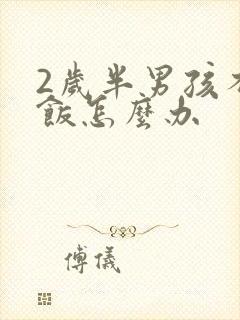 2歲半男孩不
飯怎麼办
傅儀